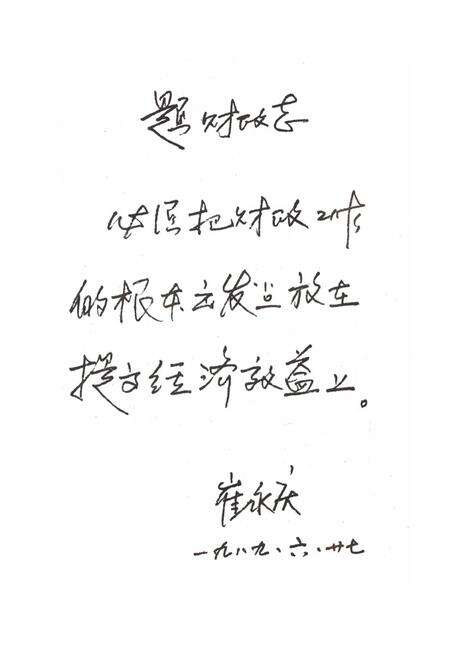 题财政志
必须把财政工作
的根本出发点放在
提高经济效益上。
崔永庆
一九八九.六.廿七